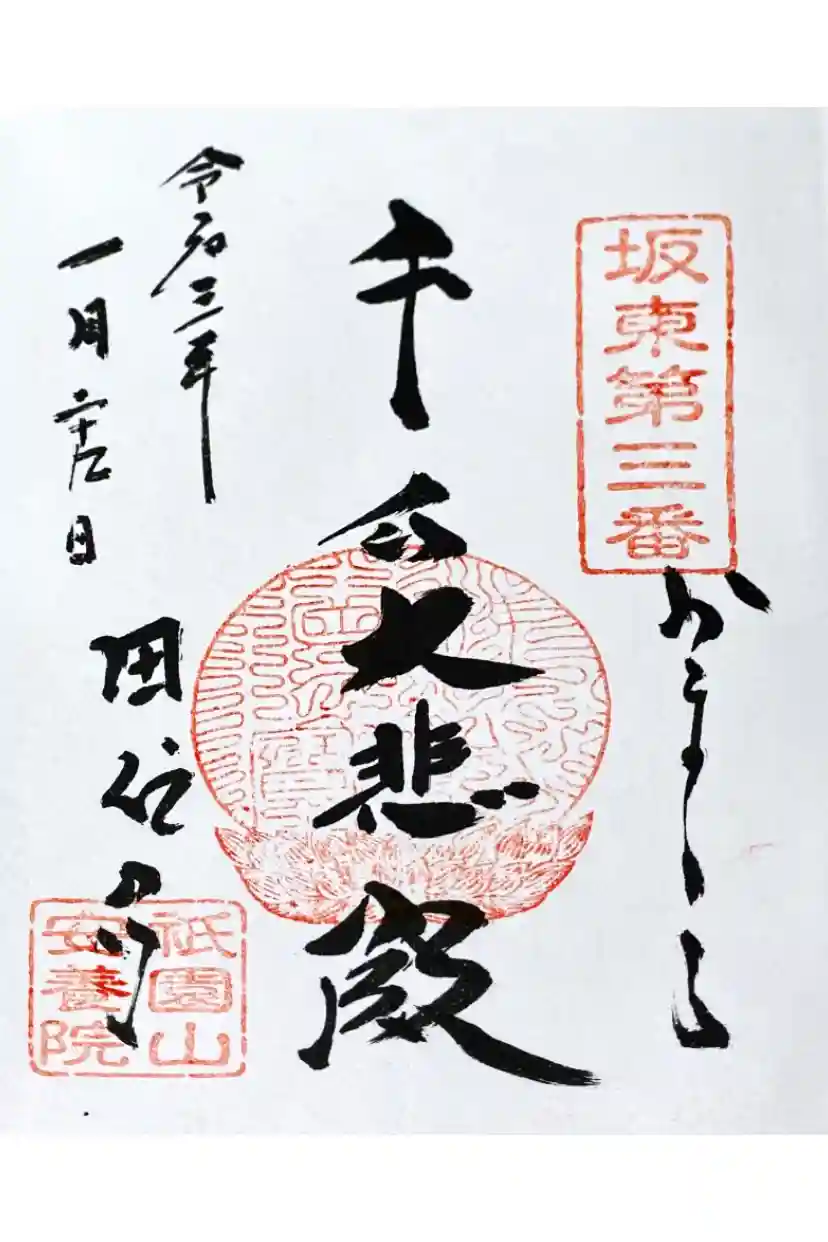 坂東第三番
かまくら
千手大悲殿
田代寺
令和三年
一月 日
祇園山
安養院